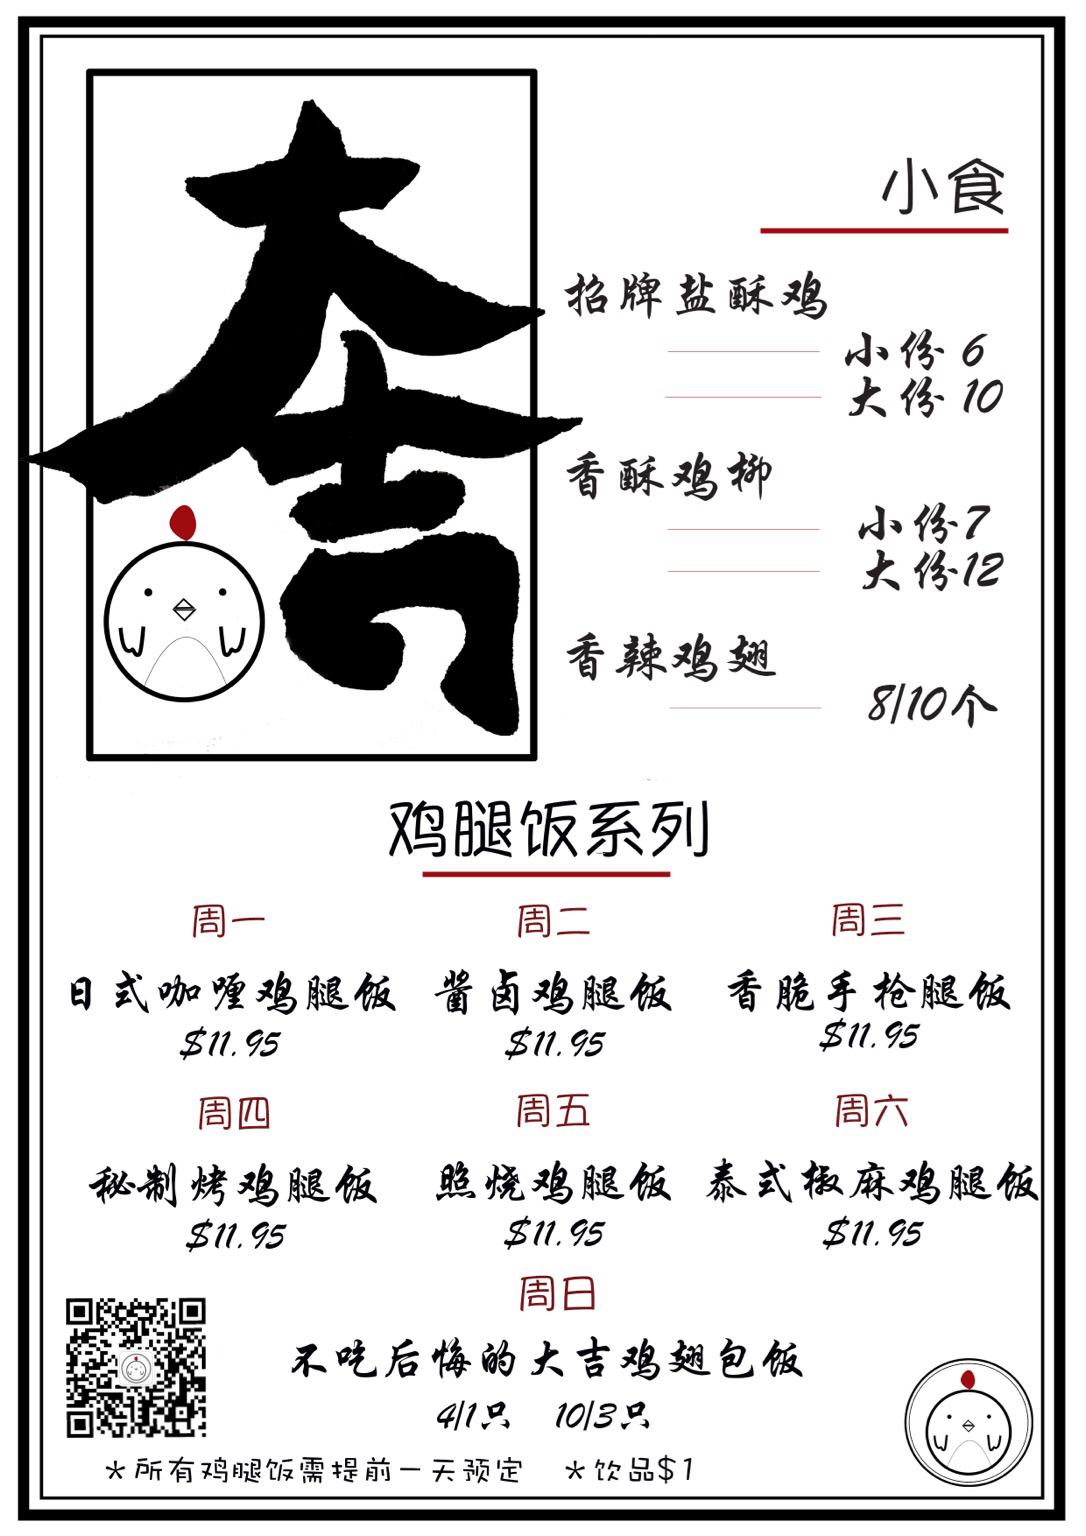 大吉
小食
招牌盐酥鸡
小份 6
大份 10
香酥鸡柳
小份 7
大份 12
香辣鸡翅
8/10个
鸡腿饭系列
周一 周二 周三
日式咖喱鸡腿饭 酱卤鸡腿饭 香脆手枪腿饭
$11.95 $11.95 $11.95
周四 周五 周六
秘制烤鸡腿饭 照烧鸡腿饭 泰式椒麻鸡腿饭
$11.95 $11.95 $11.95
周日
不吃后悔的大吉鸡翅包饭
4/1只 10/3只
*所有鸡腿饭需提前一天预定 *饮品$1